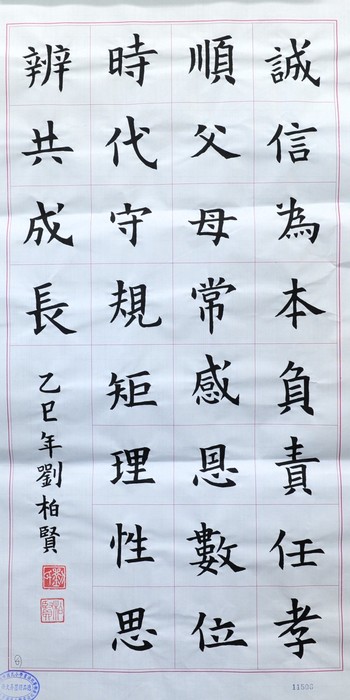 誠信為本負責任孝
順父母常感恩數位
時代守規矩理性思
辨共成長
乙巳年劉柏賢
6
11500